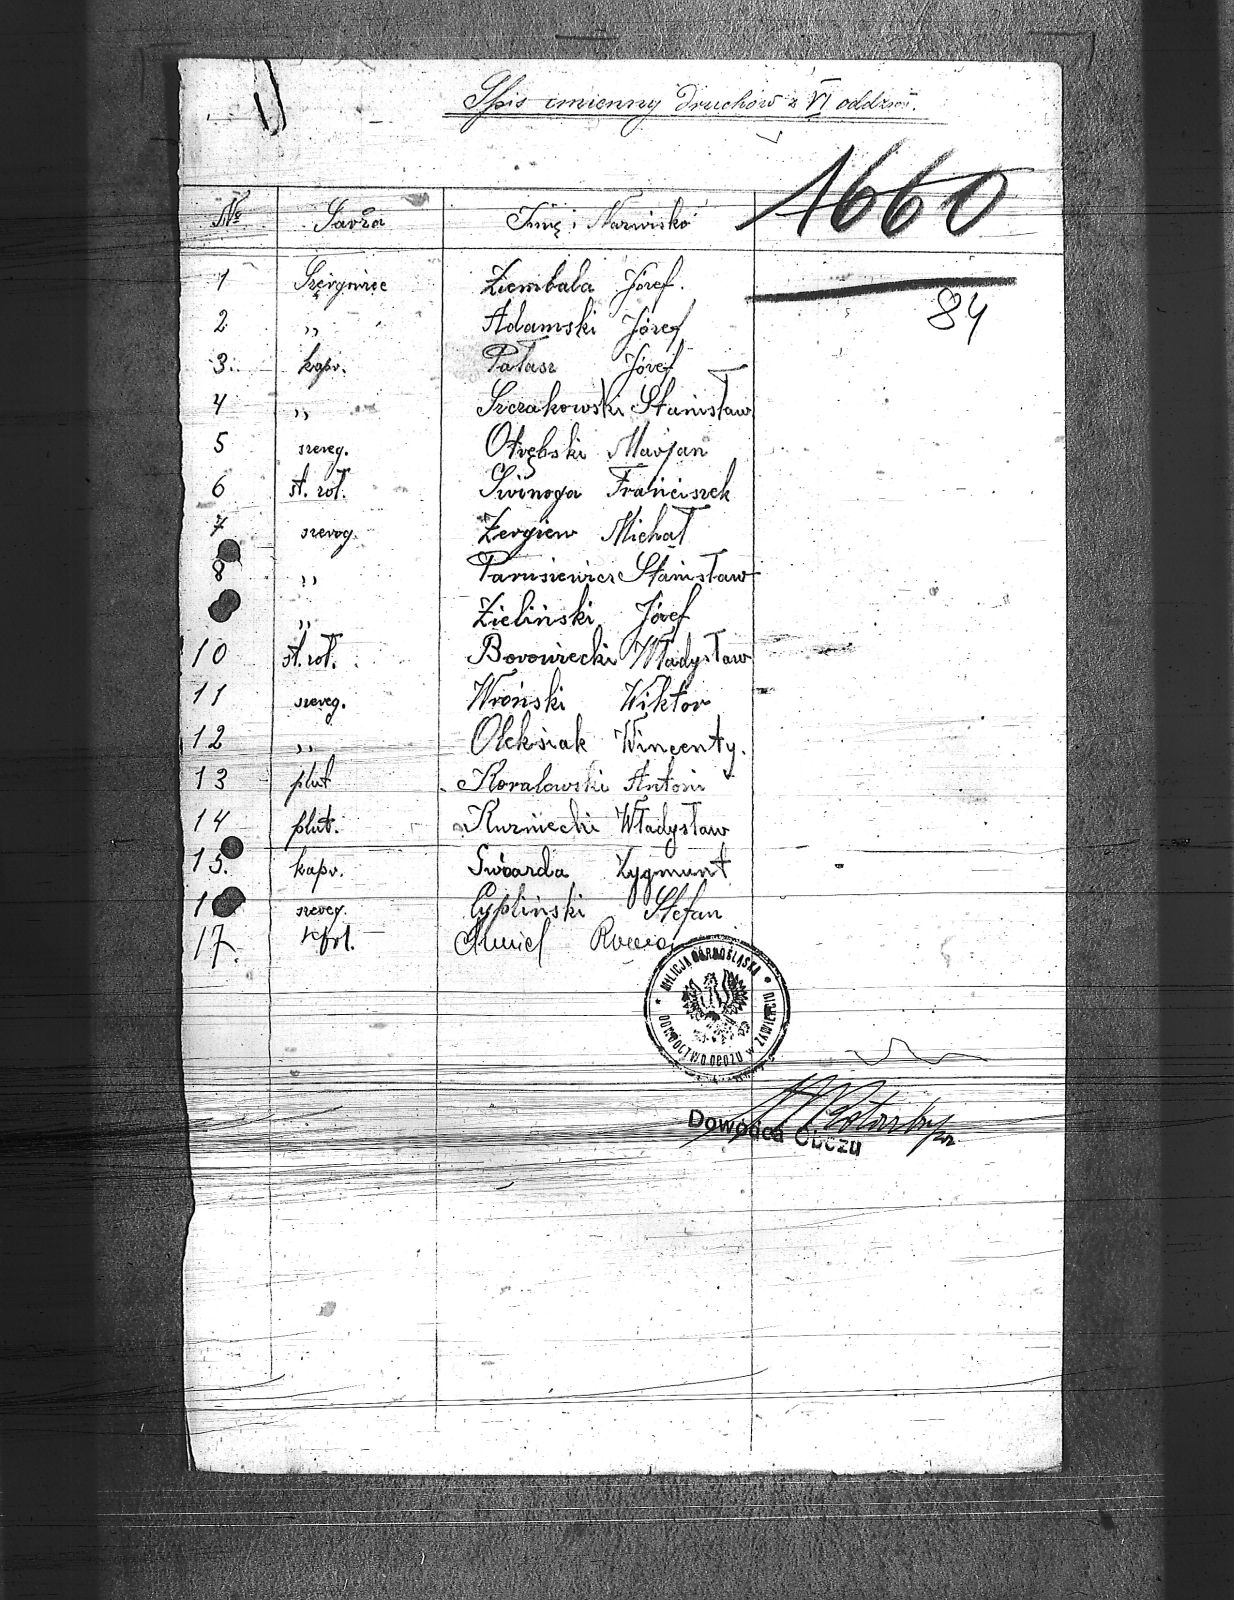 Spis imienny druchów z VI oddział.
1660
84
No Szarża Imię i Nazwisko
1 Szergowiec Ziembala Józef.
2 ,, Adamski Józef
3. kapr. Pałasz Józef
4 ,, Szczakowski Stanisław
5 szereg. Otrębski Marjan
6 st. żoł. Swinoga Franciszek
7 szereg. Zergiew Michał
8 ,, Parusiewicz Stanisław
,, Zieliński Józef
10 st. żoł. Borowiecki Władysław
11 szereg. Wroński Wiktor
12 ,, Oleksiak Wincenty.
13 plut Koralowski Antoni
14 plut. Kuzniecki Władysław
15. kapr. Swoarda Zygmunt
1 szereg. Cypliński Stefan
17.
MILICJA GÓRNOŚLĄSKA
DOWÓDCTWO OBOZU W ZAWIERCIU
Dowódca Obozu